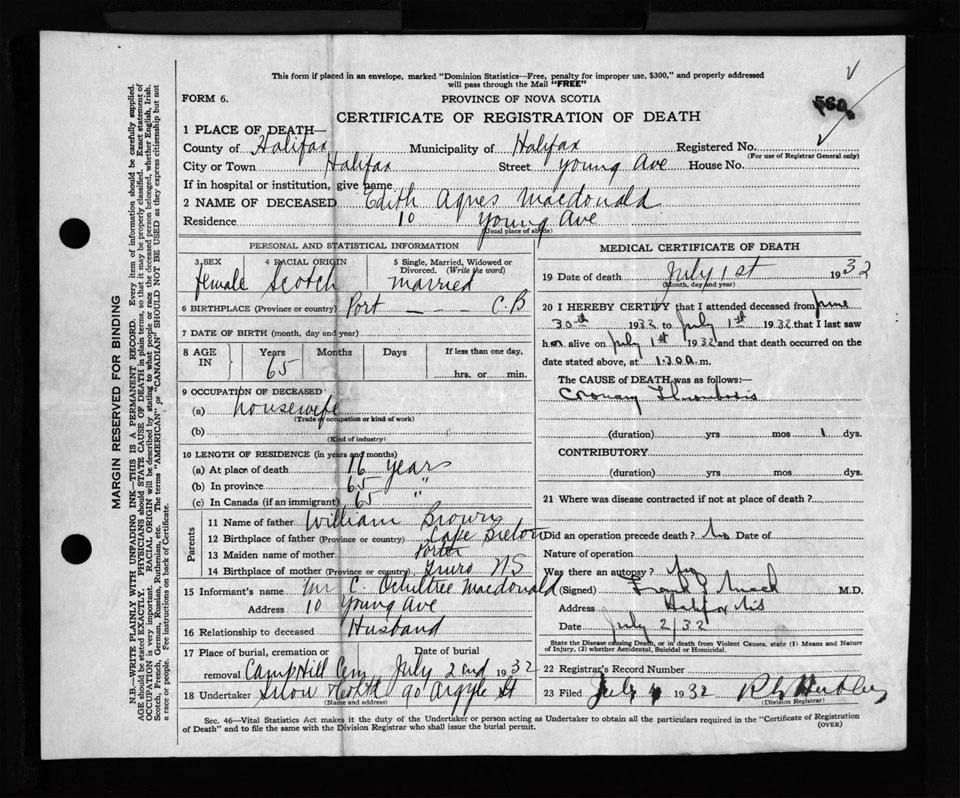 This form if placed in an envelope, marked "Dominion Statistics—Free, penalty for improper use, $300," and properly addressed
will pass through the Mail "FREE"
FORM 6.
PROVINCE OF NOVA SCOTIA
560
CERTIFICATE OF REGISTRATION OF DEATH
1 PLACE OF DEATH—
County of Halifax Municipality of Halifax Registered No.
(For use of Registrar General only)
City or Town Halifax Street Young Ave House No.
If in hospital or institution, give name
2 NAME OF DECEASED Edith Agnes Macdonald
Residence 10 Young Ave
(Usual place of abode)
PERSONAL AND STATISTICAL INFORMATION
3 SEX 4 RACIAL ORIGIN 5 Single, Married, Widowed or
Divorced. (Write the word)
female Scotch married
6 BIRTHPLACE (Province or country) Port — — — C.B
7 DATE OF BIRTH (month, day and year)
8 AGE IN Years Months Days If less than one day,
65 hrs. or min.
9 OCCUPATION OF DECEASED
(a) housewife
(Trade of occupation or kind of work)
(b)
(Kind of industry)
10 LENGTH OF RESIDENCE (in years and months)
(a) At place of death 16 years
(b) In province 65 "
(c) In Canada (if an immigrant) 65 "
Parents
11 Name of father William Brown
12 Birthplace of father (Province or country) Cape Breton
13 Maiden name of mother Porter
14 Birthplace of mother (Province or country) Truro N.S
15 Informant's name Mr C. Macdonald
Address 10 Young Ave
16 Relationship to deceased Husband
17 Place of burial, cremation or Date of burial
removal Camp Hill Cem July 2nd 1932
18 Undertaker Snow & Co Ltd 90 Argyle St
(Name and address)
MEDICAL CERTIFICATE OF DEATH
19 Date of death July 1st 1932
(Month, day and year)
20 I HEREBY CERTIFY that I attended deceased from June
30th 1932 to July 1st 1932 that I last saw
her alive on July 1st 1932 and that death occurred on the
date stated above, at 1.30 a. m.
The CAUSE OF DEATH was as follows:—
Coronary Thrombosis
(duration) yrs mos 1 dys.
CONTRIBUTORY
(duration) yrs. mos dys.
21 Where was disease contracted if not at place of death?
Did an operation precede death? No Date of
Nature of operation
Was there an autopsy? No
(Signed) Frank Mack M.D.
Address Halifax N.S
Date July 2/32
State the Disease causing Death, or in death from Violent Causes, state (1) Means and Nature
of Injury, (2) whether Accidental, Suicidal or Homicidal.
22 Registrar's Record Number
23 Filed July 4 1932
(Division Registrar)
Sec. 46—Vital Statistics Act makes it the duty of the Undertaker or person acting as Undertaker to obtain all the particulars required in the "Certificate of Registration
of Death" and to file the same with the Division Registrar who shall issue the burial permit.
(OVER)
MARGIN RESERVED FOR BINDING
N.B.—WRITE PLAINLY WITH UNFADING INK—THIS IS A PERMANENT RECORD. Every item of information should be carefully supplied.
AGE should be stated EXACTLY. PHYSICIANS should STATE CAUSE OF DEATH in plain terms, so that it may be properly classified. Exact statement of
OCCUPATION is very important. RACIAL ORIGIN will be described by stating to what people or race the deceased person belonged, whether English, Irish,
Scotch, French, German, Russian, Ruthenian, etc. The terms "AMERICAN" or "CANADIAN" SHOULD NOT BE USED as they express citizenship but not
a race or people. Fee instructions on back of Certificate.